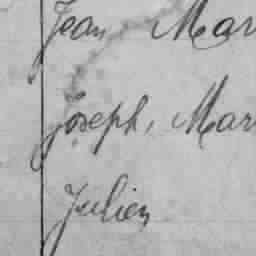 Jean Mar
Joseph, Mar
Julien